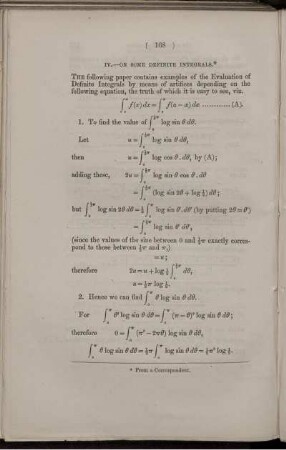 ( 168 )
IV.—ON SOME DEFINITE INTEGRALS.*
THE following paper contains examples of the Evaluation of
Definite Integrals by means of artifices depending on the
following equation, the truth of which it is easy to see, viz.
∫₀ᵃ f(x) dx = ∫₀ᵃ f(a − x) dx ............ (A).
1. To find the value of ∫₀^{½π} log sin θ dθ.
Let u = ∫₀^{½π} log sin θ dθ,
then u = ∫₀^{½π} log cos θ . dθ, by (A);
adding these, 2u = ∫₀^{½π} log sin θ cos θ . dθ
= ∫₀^{½π} (log sin 2θ + log ½) dθ;
but ∫₀^{½π} log sin 2θ dθ = ½ ∫₀^π log sin θ′ . dθ′ (by putting 2θ = θ′)
= ∫₀^{½π} log sin θ′ dθ′,
(since the values of the sine between 0 and ½π exactly corres-
pond to those between ½π and π,)
= u;
therefore 2u = u + log ½ ∫₀^{½π} dθ,
u = ½π log ½.
2. Hence we can find ∫₀^π θ log sin θ dθ.
For ∫₀^π θ² log sin θ dθ = ∫₀^π (π − θ)² log sin θ dθ;
therefore 0 = ∫₀^π (π² − 2πθ) log sin θ dθ,
∫₀^π θ log sin θ dθ = ½π ∫₀^π log sin θ dθ = ½π² log ½.
* From a Correspondent.